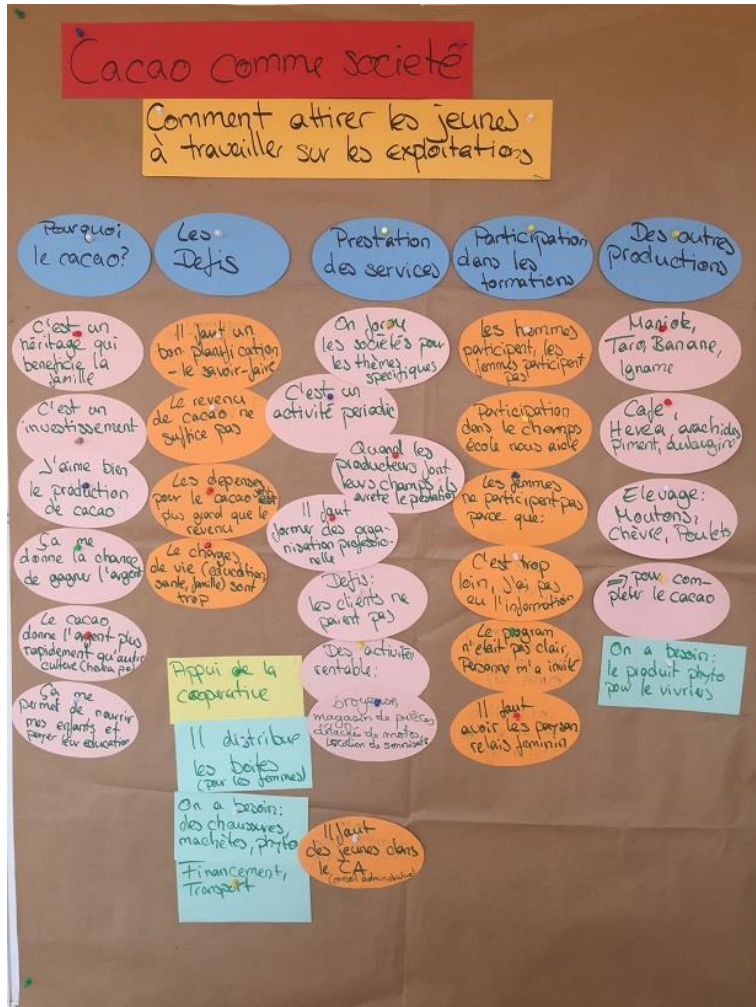 Cacao comme societé
Comment attirer les jeunes
à travailler sur les exploitations
Pourquoi
le cacao?
C'est un
héritage qui
beneficie la
famille
C'est un
investissement
J'aime bien
le production
de cacao
Ça me
donne la chance
de gagner l'argent
Le cacao
donne l'argent plus
rapidement qu'autre
culture
Ça me
permet de nourrir
mes enfants et
payer leur education
Les
Defis
Il faut un
bon planification
- le savoir-faire
Le revenu
de cacao ne
suffice pas
Les depenses
pour le cacao est
plus grand que le
revenu
Le charges
de vie (education,
santé, famille) sont
trop
Appui de la
cooperative
Il distribue
les boites
(pour les femmes)
On a besoin:
des chaussures,
machètes, phyto
Financement,
Transport
Prestation
des services
On forme
les sociétés pour
les thèmes
spécifiques
C'est un
activité periodic
Quand les
producteurs font
leurs champs ils
arrete le prestation
Il faut
former des orga-
nisation professio-
nelle
Defis:
les clients ne
paient pas
Des activités
rentable:
broyeuse,
magasin de pièces
détaché de motos
Location de
Il faut
des jeunes dans
le CA
(conseil administratif)
Participation
dans les
formations
Les hommes
participent, les
femmes participent
pas
Participation
dans le champs
école nous aide
Les femmes
ne participent pas
parce que:
C'est trop
loin, j'ai pas
eu l'information
Le program
n'etait pas clair,
Personne m'a invité
Il faut
avoir les paysan
relais feminin
Des autres
productions
Maniok,
Taro, Banane,
Igname
Café,
Hevea, arachides
Piment, aubargine
Elevage:
Moutons,
Chèvre, Poulets
⇒ pour com-
pléter le cacao
On a besoin:
le produit phyto
pour le vivriers